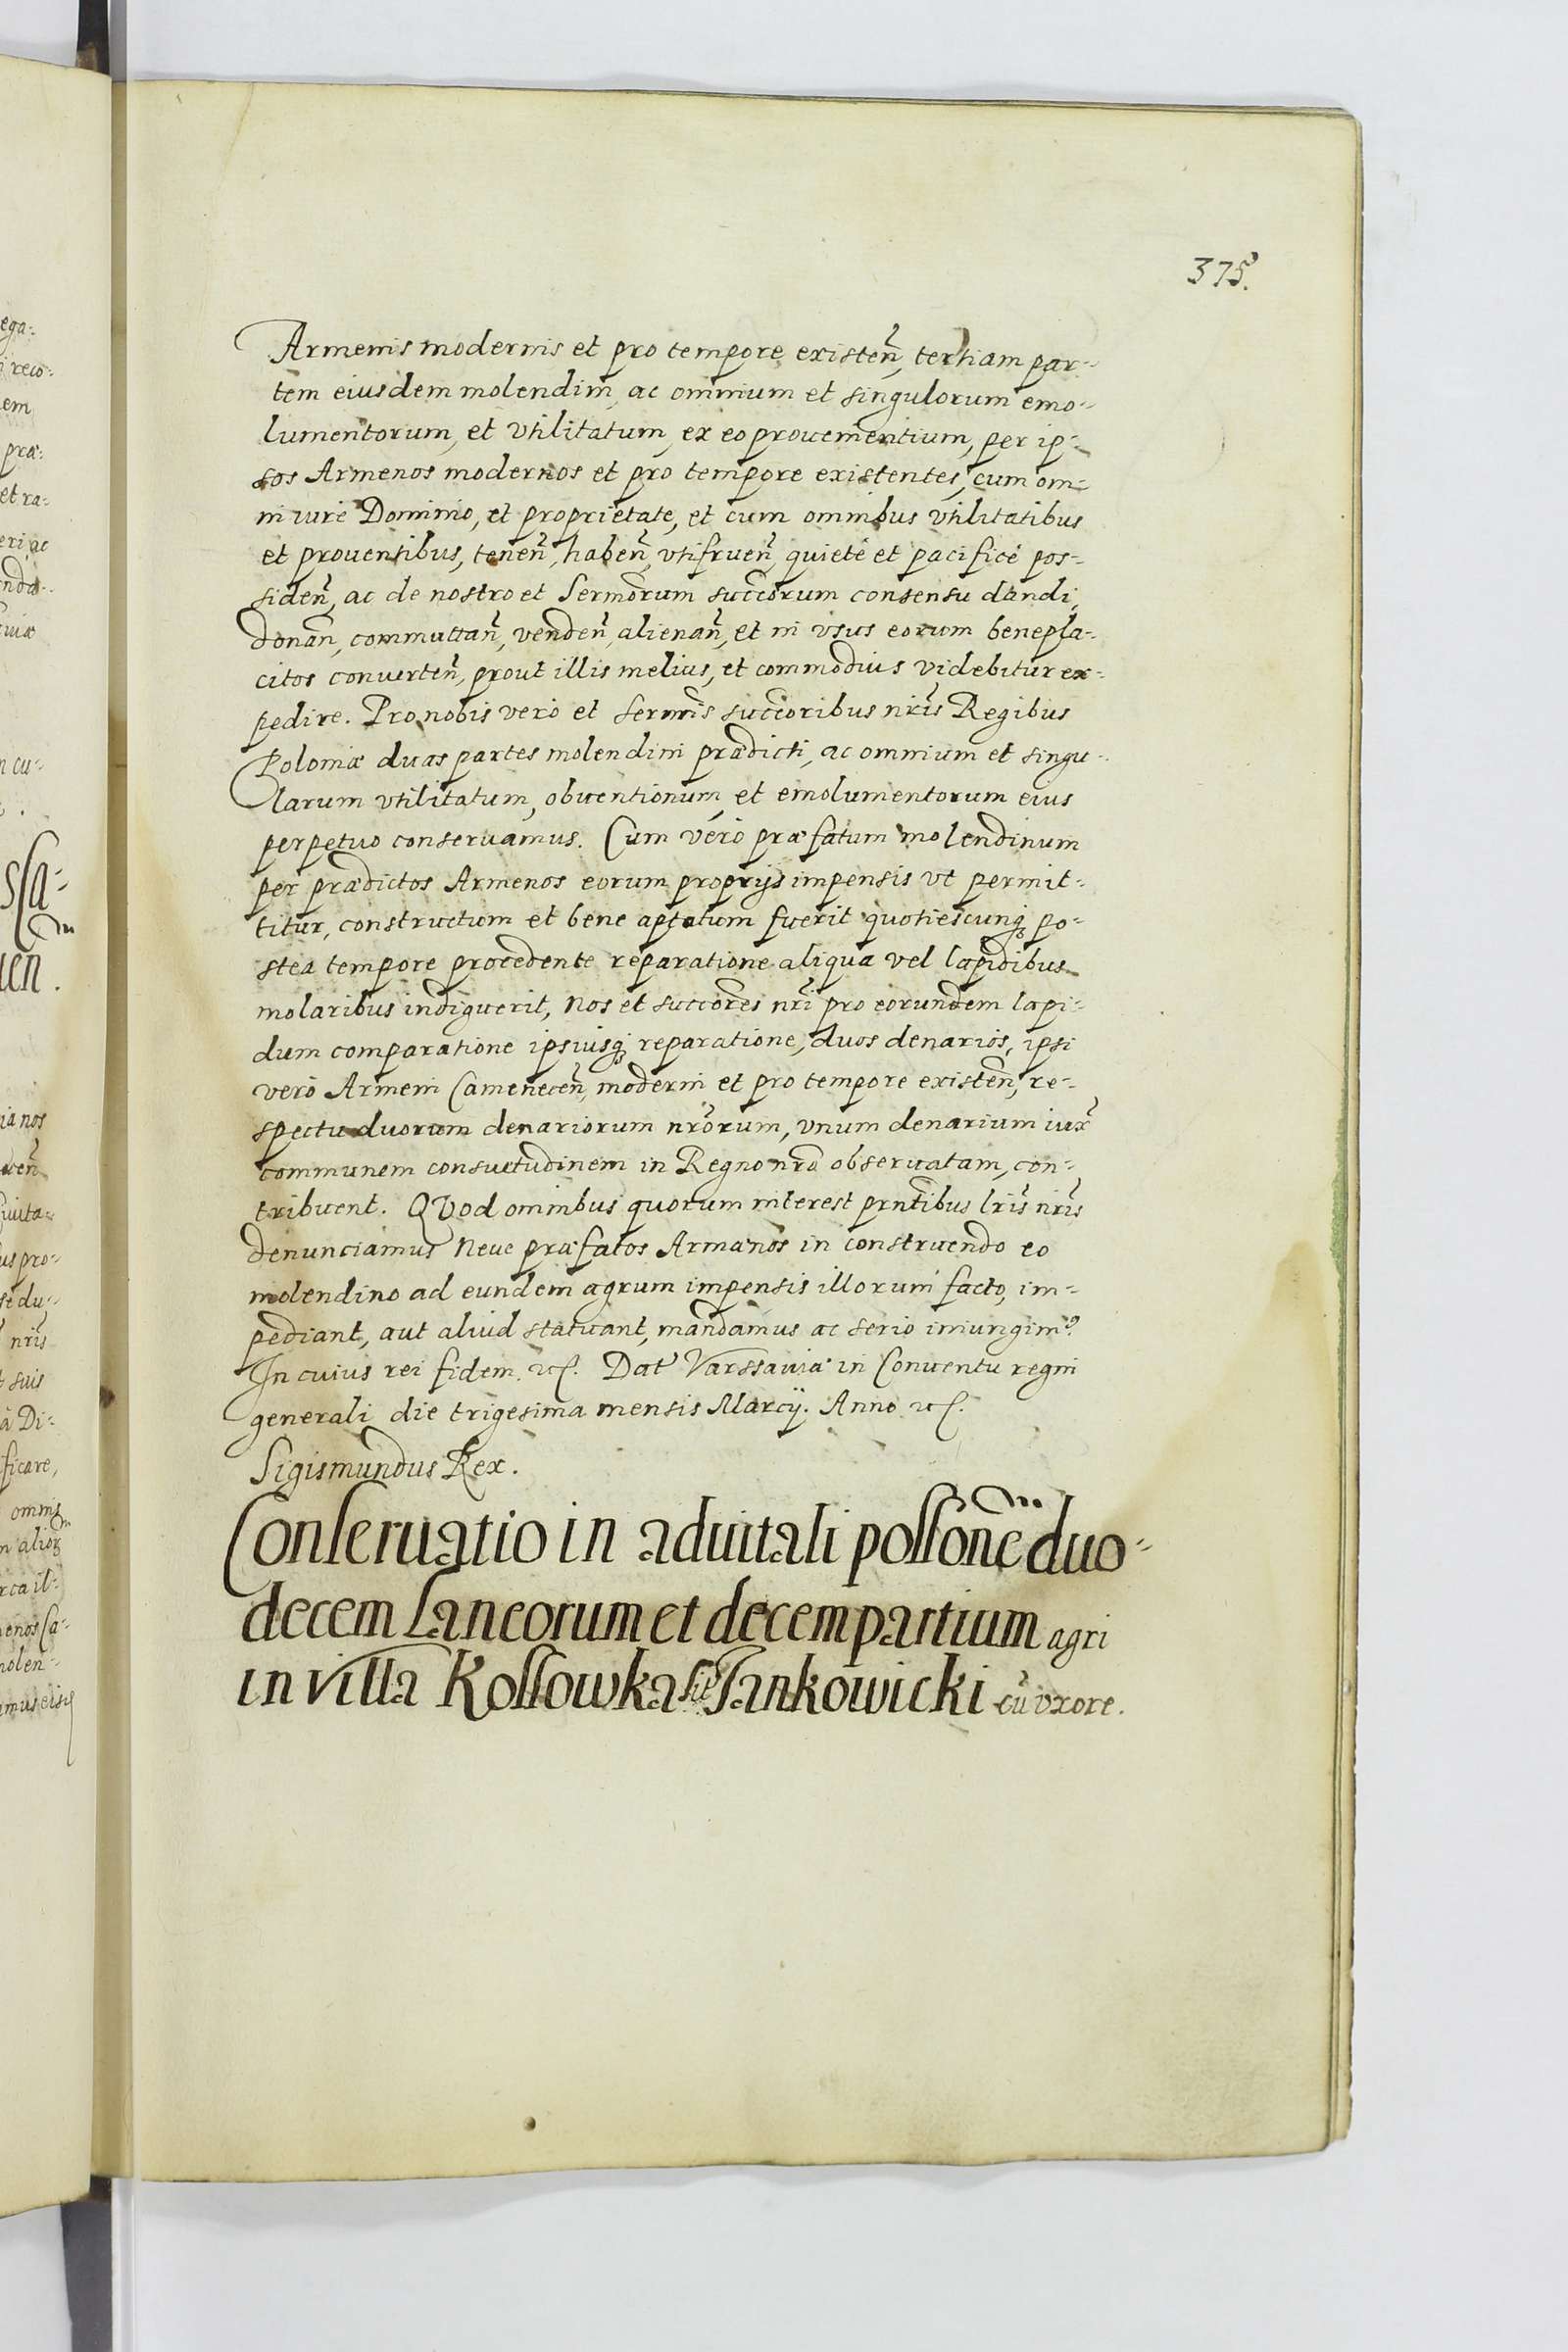 375.
Armenis modernis et pro tempore existen̄, tertiam par-
tem eiusdem molendini, ac omnium et singulorum emo-
lumentorum, et vtilitatum, ex eo prouenientium, per ip-
sos Armenos modernos et pro tempore existentes, cum om-
ni iure Dominio, et proprietate, et cum omnibus vtilitatibus
et prouentibus, tenen̄, haben̄, vtifruen̄, quietè et pacificè pos-
siden̄, ac de nostro et Sermorum succorum consensu dandi,
donan̄, commuttan̄, venden̄, alienan̄, et in vsus eorum benepla-
citos conuerten̄, prout illis melius, et commodius videbitur ex-
pedire. Pro nobis verò et sermis succoribus nris Regibus
Poloniæ duas partes molendini prædicti, ac omnium et singu-
larum vtilitatum, obuentionum, et emolumentorum eius
perpetuo conseruamus. Cum verò præfatum molendinum
per prædictos Armenos eorum proprijs impensis vt permit-
titur, constructum et bene aptatum fuerit quotiescunq; po-
stea tempore procedente reparatione aliqua vel lapidibus
molaribus indiguerit, Nos et succores nri pro eorundem lapi-
dum comparatione ipsiusq; reparatione, duos denarios, ipsi
verò Armeni Camenecen̄, moderni et pro tempore existen̄, re-
spectu duorum denariorum nrorum, vnum denarium iux̄
communem consuetudinem in Regno nro obseruatam, con-
tribuent. QVod omnibus quorum interest prntibus lris nris
denunciamus Neue præfatos Armænos in construendo eo
molendino ad eundem agrum impensis illorum facto, im-
pediant, aut aliud statuant, mandamus ac serio iniungim9
In cuius rei fidem. etc. Dat Varssauiæ in Conuentu regni
generali die trigesima mensis Marcij. Anno etc.
Sigismundus Rex.
Conseruatio in aduitali possone duo-
decem Laneorum et decem partium agri
in villa Kossowka Jankowicki cū vxore.